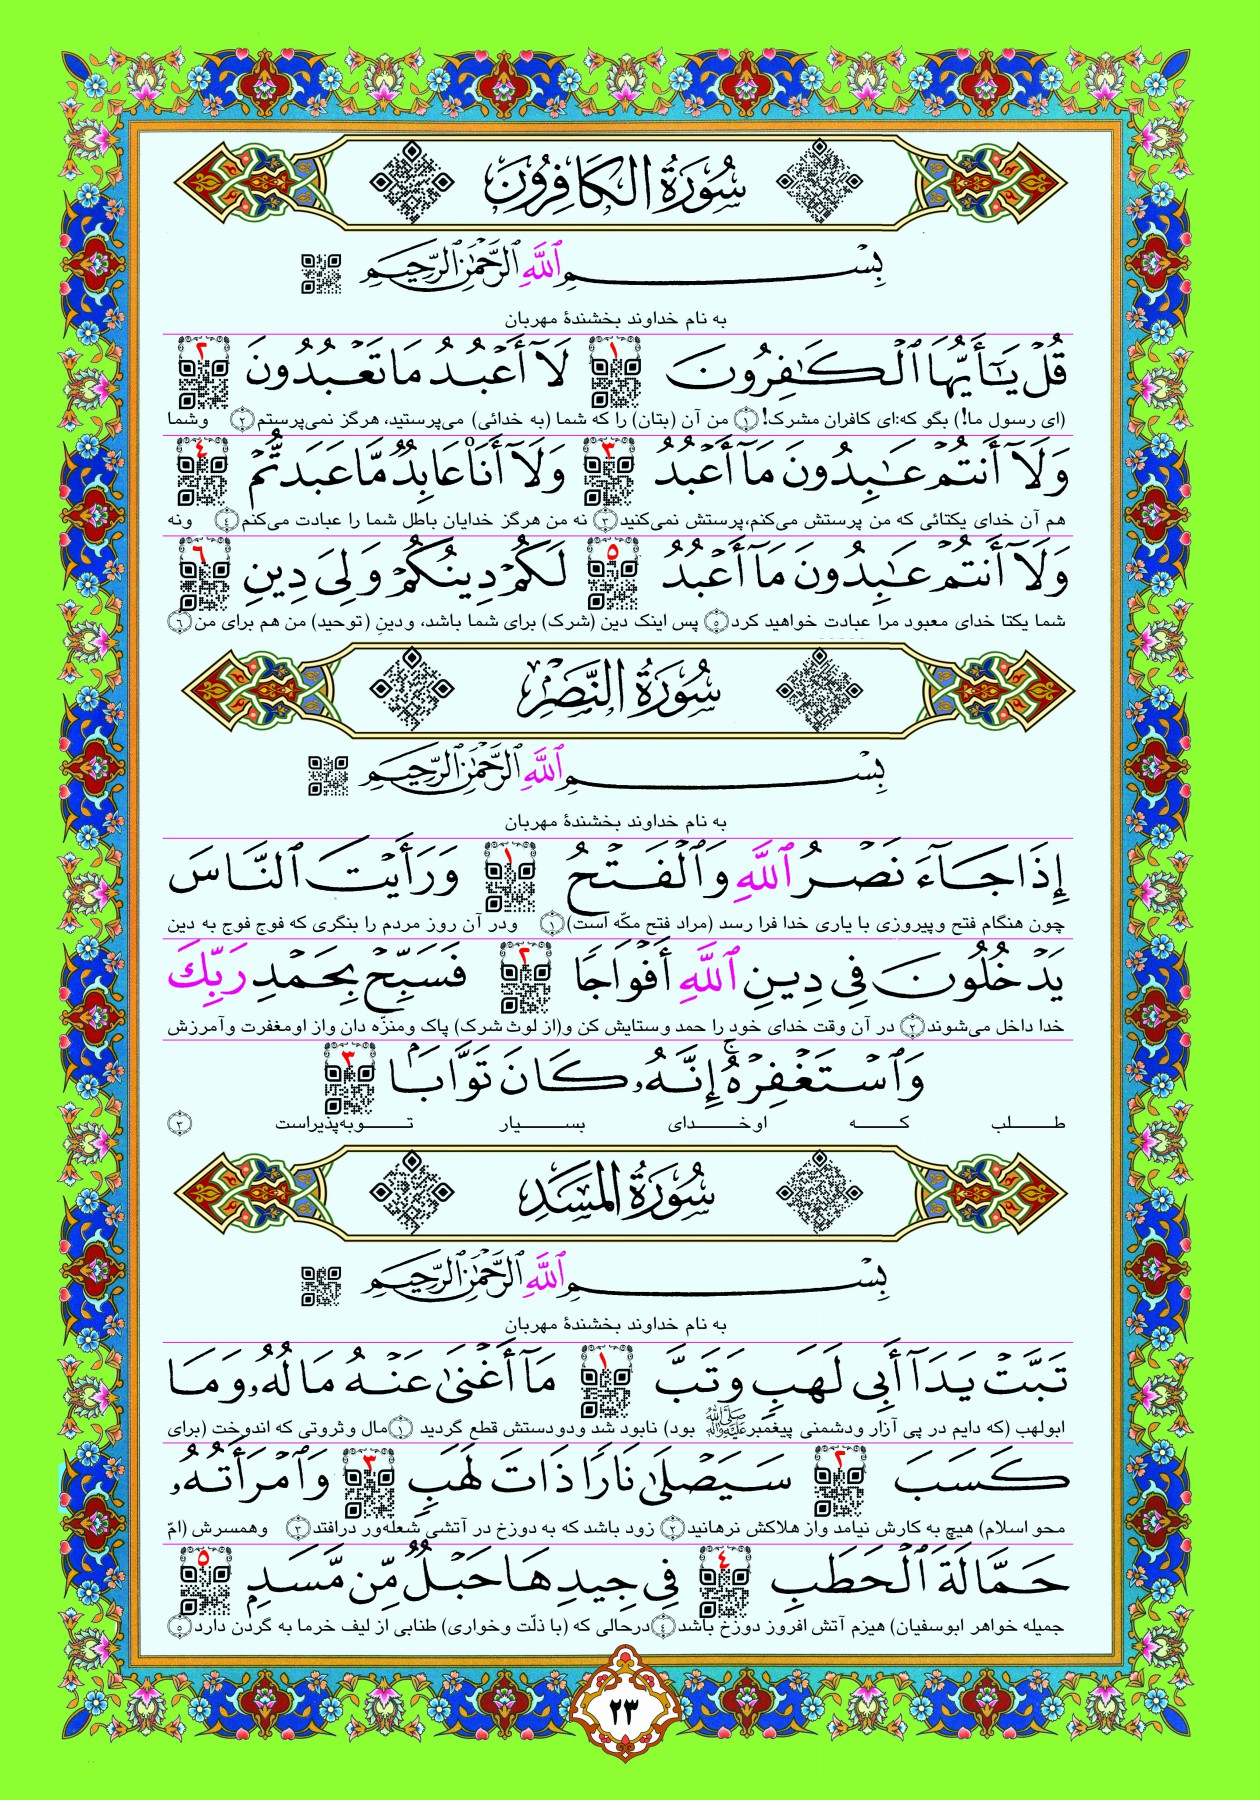 سُورَةُ الكَافِرُونَ
بِسْمِ ٱللَّهِ ٱلرَّحْمَٰنِ ٱلرَّحِيمِ
به نام خداوند بخشندهٔ مهربان
قُلْ يَٰٓأَيُّهَا ٱلْكَٰفِرُونَ ١ لَآ أَعْبُدُ مَا تَعْبُدُونَ ٢
(ای رسول ما!) بگو که:ای کافران مشرک! ١ من آن (بتان) را که شما (به خدائی) می‌پرستید، هرگز نمی‌پرستم ٢ وشما
وَلَآ أَنتُمْ عَٰبِدُونَ مَآ أَعْبُدُ ٣ وَلَآ أَنَا۠ عَابِدٌ مَّا عَبَدتُّمْ ٤
هم آن خدای یکتائی که من پرستش می‌کنم،پرستش نمی‌کنید ٣ نه من هرگز خدایان باطل شما را عبادت می‌کنم ٤ ونه
وَلَآ أَنتُمْ عَٰبِدُونَ مَآ أَعْبُدُ ٥ لَكُمْ دِينُكُمْ وَلِىَ دِينِ ٦
شما یکتا خدای معبود مرا عبادت خواهید کرد ٥ پس اینک دین (شرک) برای شما باشد، ودینِ (توحید) من هم برای من ٦
سُورَةُ النَّصْرِ
بِسْمِ ٱللَّهِ ٱلرَّحْمَٰنِ ٱلرَّحِيمِ
به نام خداوند بخشندهٔ مهربان
إِذَا جَآءَ نَصْرُ ٱللَّهِ وَٱلْفَتْحُ ١ وَرَأَيْتَ ٱلنَّاسَ
چون هنگام فتح وپیروزی با یاری خدا فرا رسد (مراد فتح مکّه است) ١ ودر آن روز مردم را بنگری که فوج فوج به دین
يَدْخُلُونَ فِى دِينِ ٱللَّهِ أَفْوَاجًا ٢ فَسَبِّحْ بِحَمْدِ رَبِّكَ
خدا داخل می‌شوند ٢ در آن وقت خدای خود را حمد وستایش کن و(از لوث شرک) پاک ومنزّه دان واز اومغفرت وآمرزش
وَٱسْتَغْفِرْهُ ۚ إِنَّهُۥ كَانَ تَوَّابًۢا ٣
طلب که اوخدای بسیار توبه‌پذیراست ٣
سُورَةُ المَسَدِ
بِسْمِ ٱللَّهِ ٱلرَّحْمَٰنِ ٱلرَّحِيمِ
به نام خداوند بخشندهٔ مهربان
تَبَّتْ يَدَآ أَبِى لَهَبٍ وَتَبَّ ١ مَآ أَغْنَىٰ عَنْهُ مَالُهُۥ وَمَا
ابولهب (که دایم در پی آزار ودشمنی پیغمبر ﷺ بود) نابود شد ودودستش قطع گردید ١ مال وثروتی که اندوخت (برای
كَسَبَ ٢ سَيَصْلَىٰ نَارًا ذَاتَ لَهَبٍ ٣ وَٱمْرَأَتُهُۥ
محو اسلام) هیچ به کارش نیامد واز هلاکش نرهانید ٢ زود باشد که به دوزخ در آتشی شعله‌ور درافتد ٣ وهمسرش (امّ
حَمَّالَةَ ٱلْحَطَبِ ٤ فِى جِيدِهَا حَبْلٌ مِّن مَّسَدٍۭ ٥
جمیله خواهر ابوسفیان) هیزم آتش افروز دوزخ باشد ٤ درحالی که (با ذلّت وخواری) طنابی از لیف خرما به گردن دارد ٥
٢٣